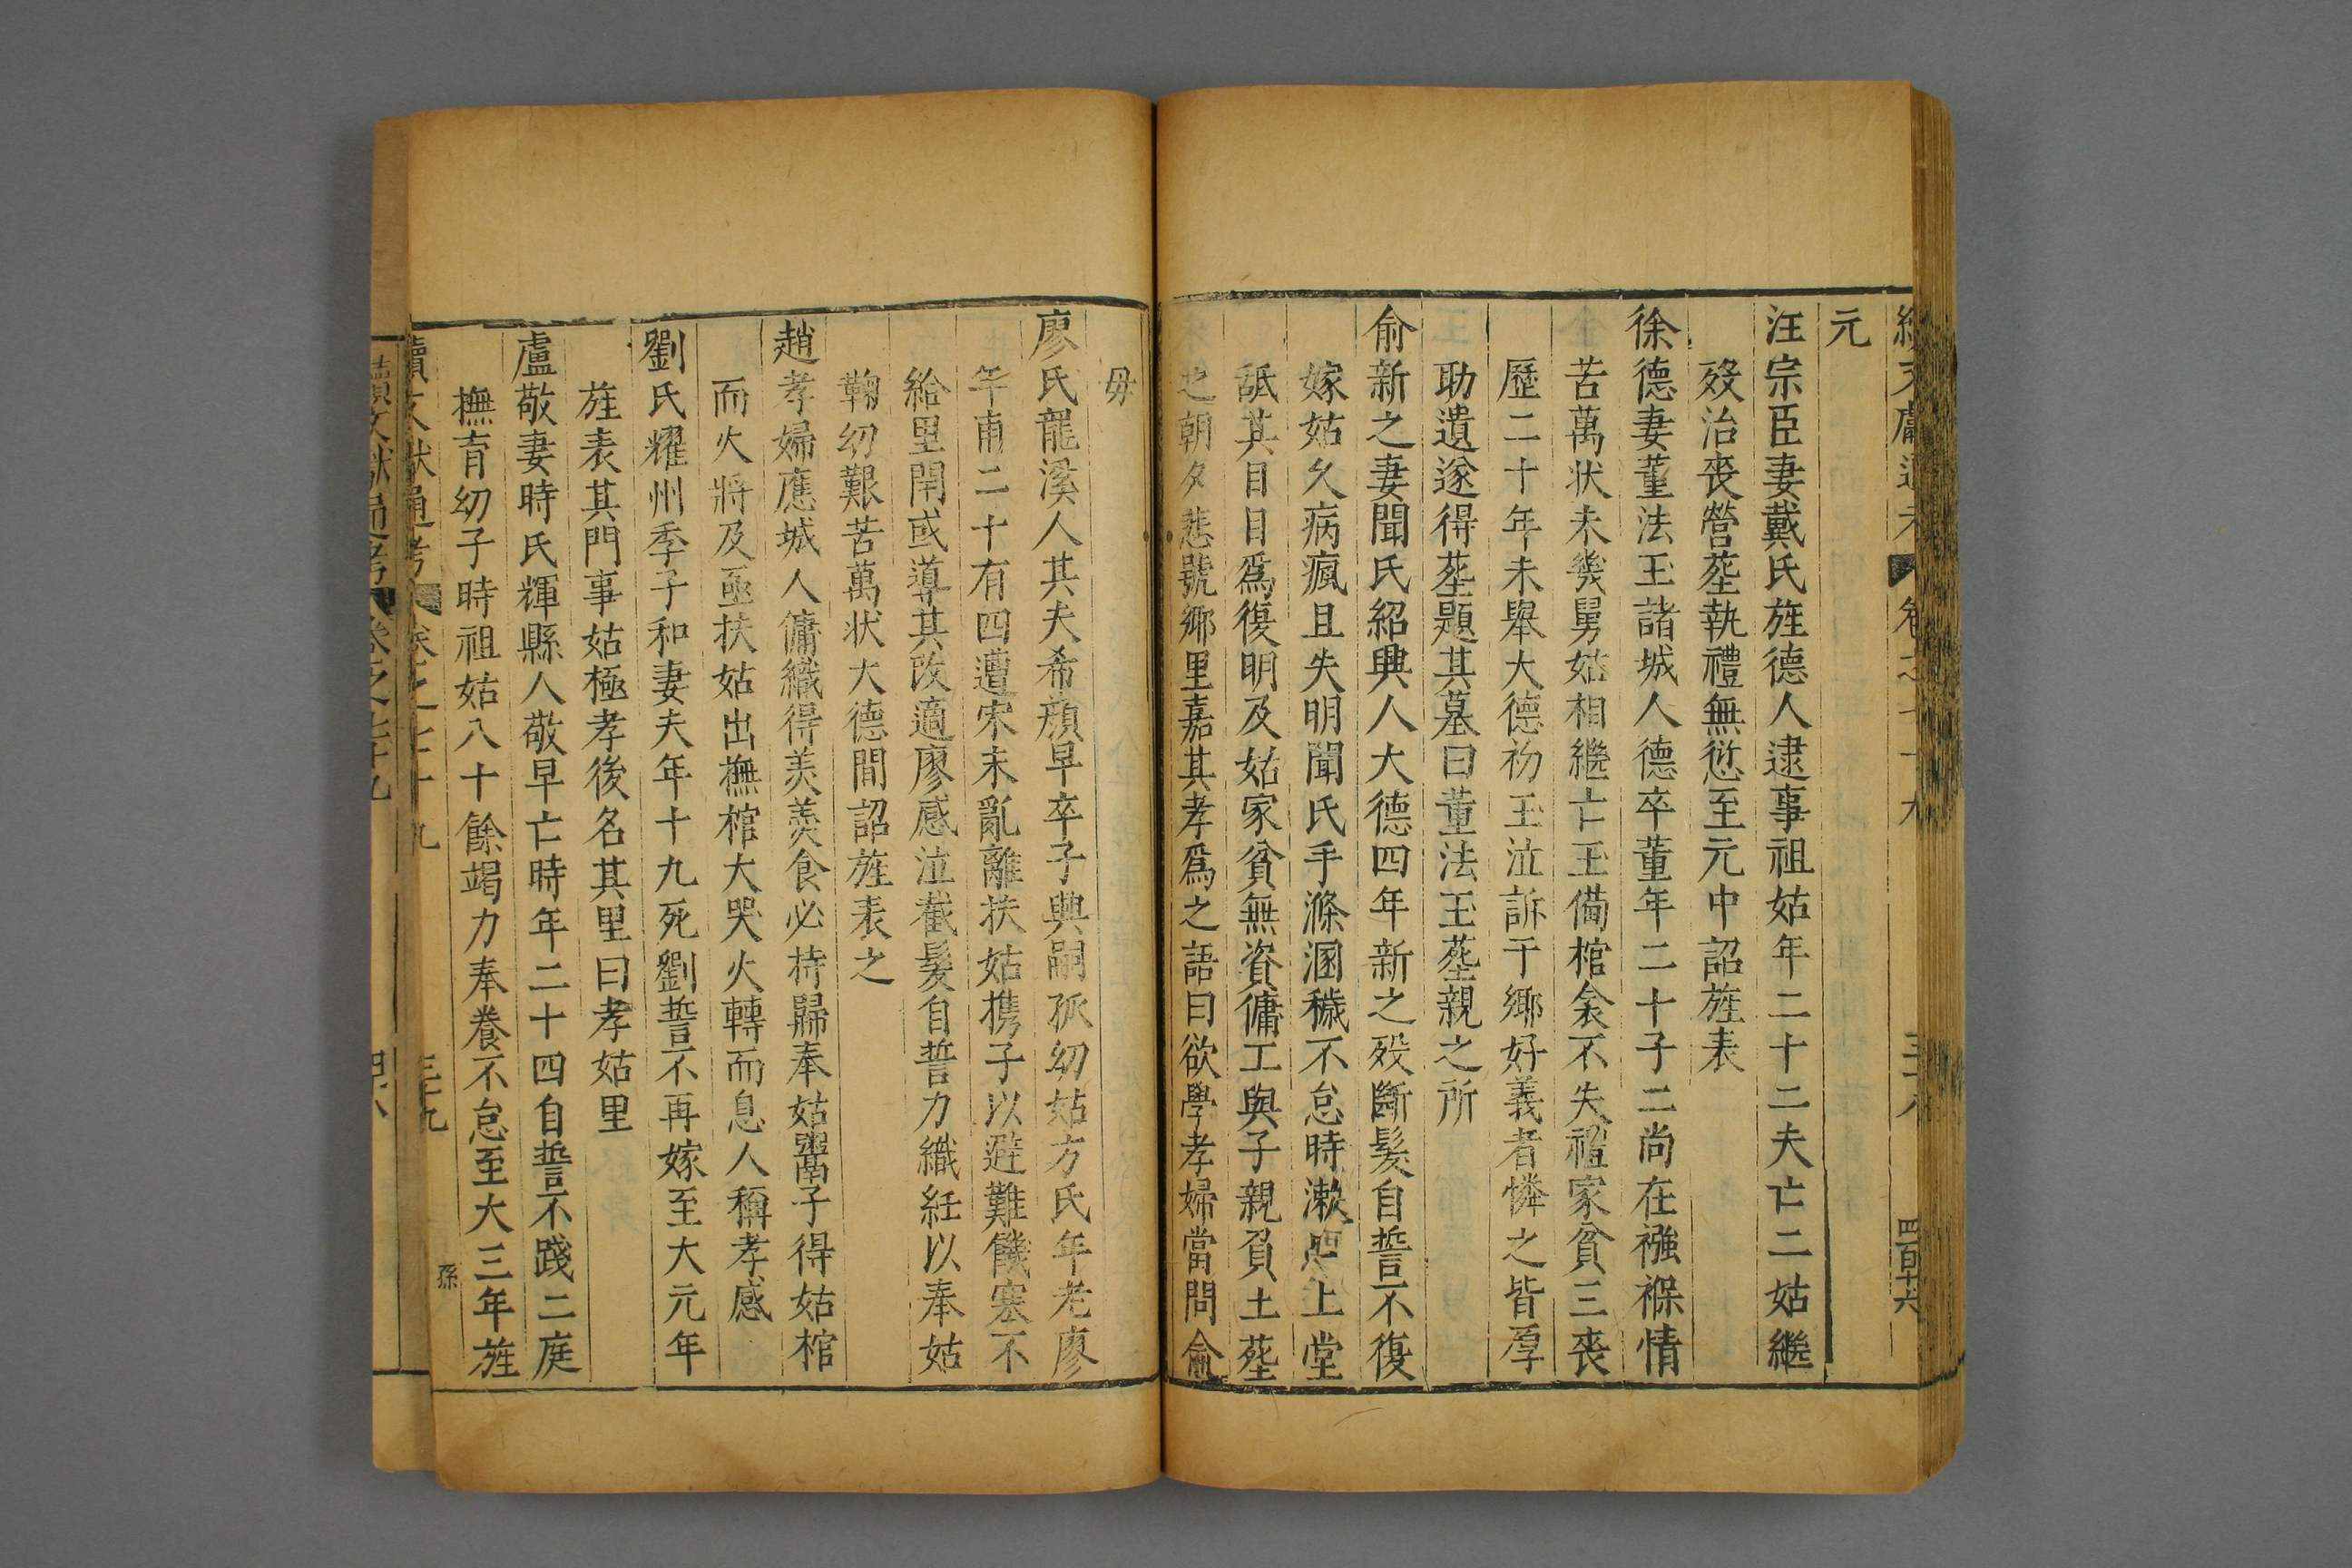 元
汪宗臣妻戴氏旌德人逮事祖姑年二十二夫亡二姑繼
歿治喪營塟執禮無愆至元中詔旌表
徐德妻董法王諸城人德卒董年二十子二尚在襁褓情
苦萬状未幾舅姑相繼亡王備棺衾不失禮家貧三喪
歷二十年未舉大德初王泣訴于鄉好義者憐之皆厚
助遺遂得塟題其墓曰董法王塟親之所
俞新之妻聞氏紹興人大德四年新之殁斷髮自誓不復
嫁姑久病瘋且失明聞氏手滌溷穢不怠時漱上堂
舐其目目爲復明及姑家貧無資傭工與子親負土塟
之朝夕悲號鄉里嘉其孝爲之語曰欲學孝婦當問俞
母
廖氏龍溪人其夫希顔早卒子興嗣孤幼姑方氏年老廖
年甫二十有四遭宋末亂離扶姑携子以避難饑寒不
給里閈或導其改適廖感泣截髮自誓力織紝以奉姑
鞠幼艱苦萬状大德間詔旌表之
趙孝婦應城人傭織得美羨食必持歸奉姑鬻子得姑棺
而火將及亟扶姑出撫棺大哭火轉而息人稱孝感
劉氏耀州季子和妻夫年十九死劉誓不再嫁至大元年
旌表其門事姑極孝後名其里曰孝姑里
盧敬妻時氏輝縣人敬早亡時年二十四自誓不踐二庭
撫育幼子時祖姑八十餘竭力奉養不怠至大三年旌
續文獻通考 卷之七十九 三十九 孫